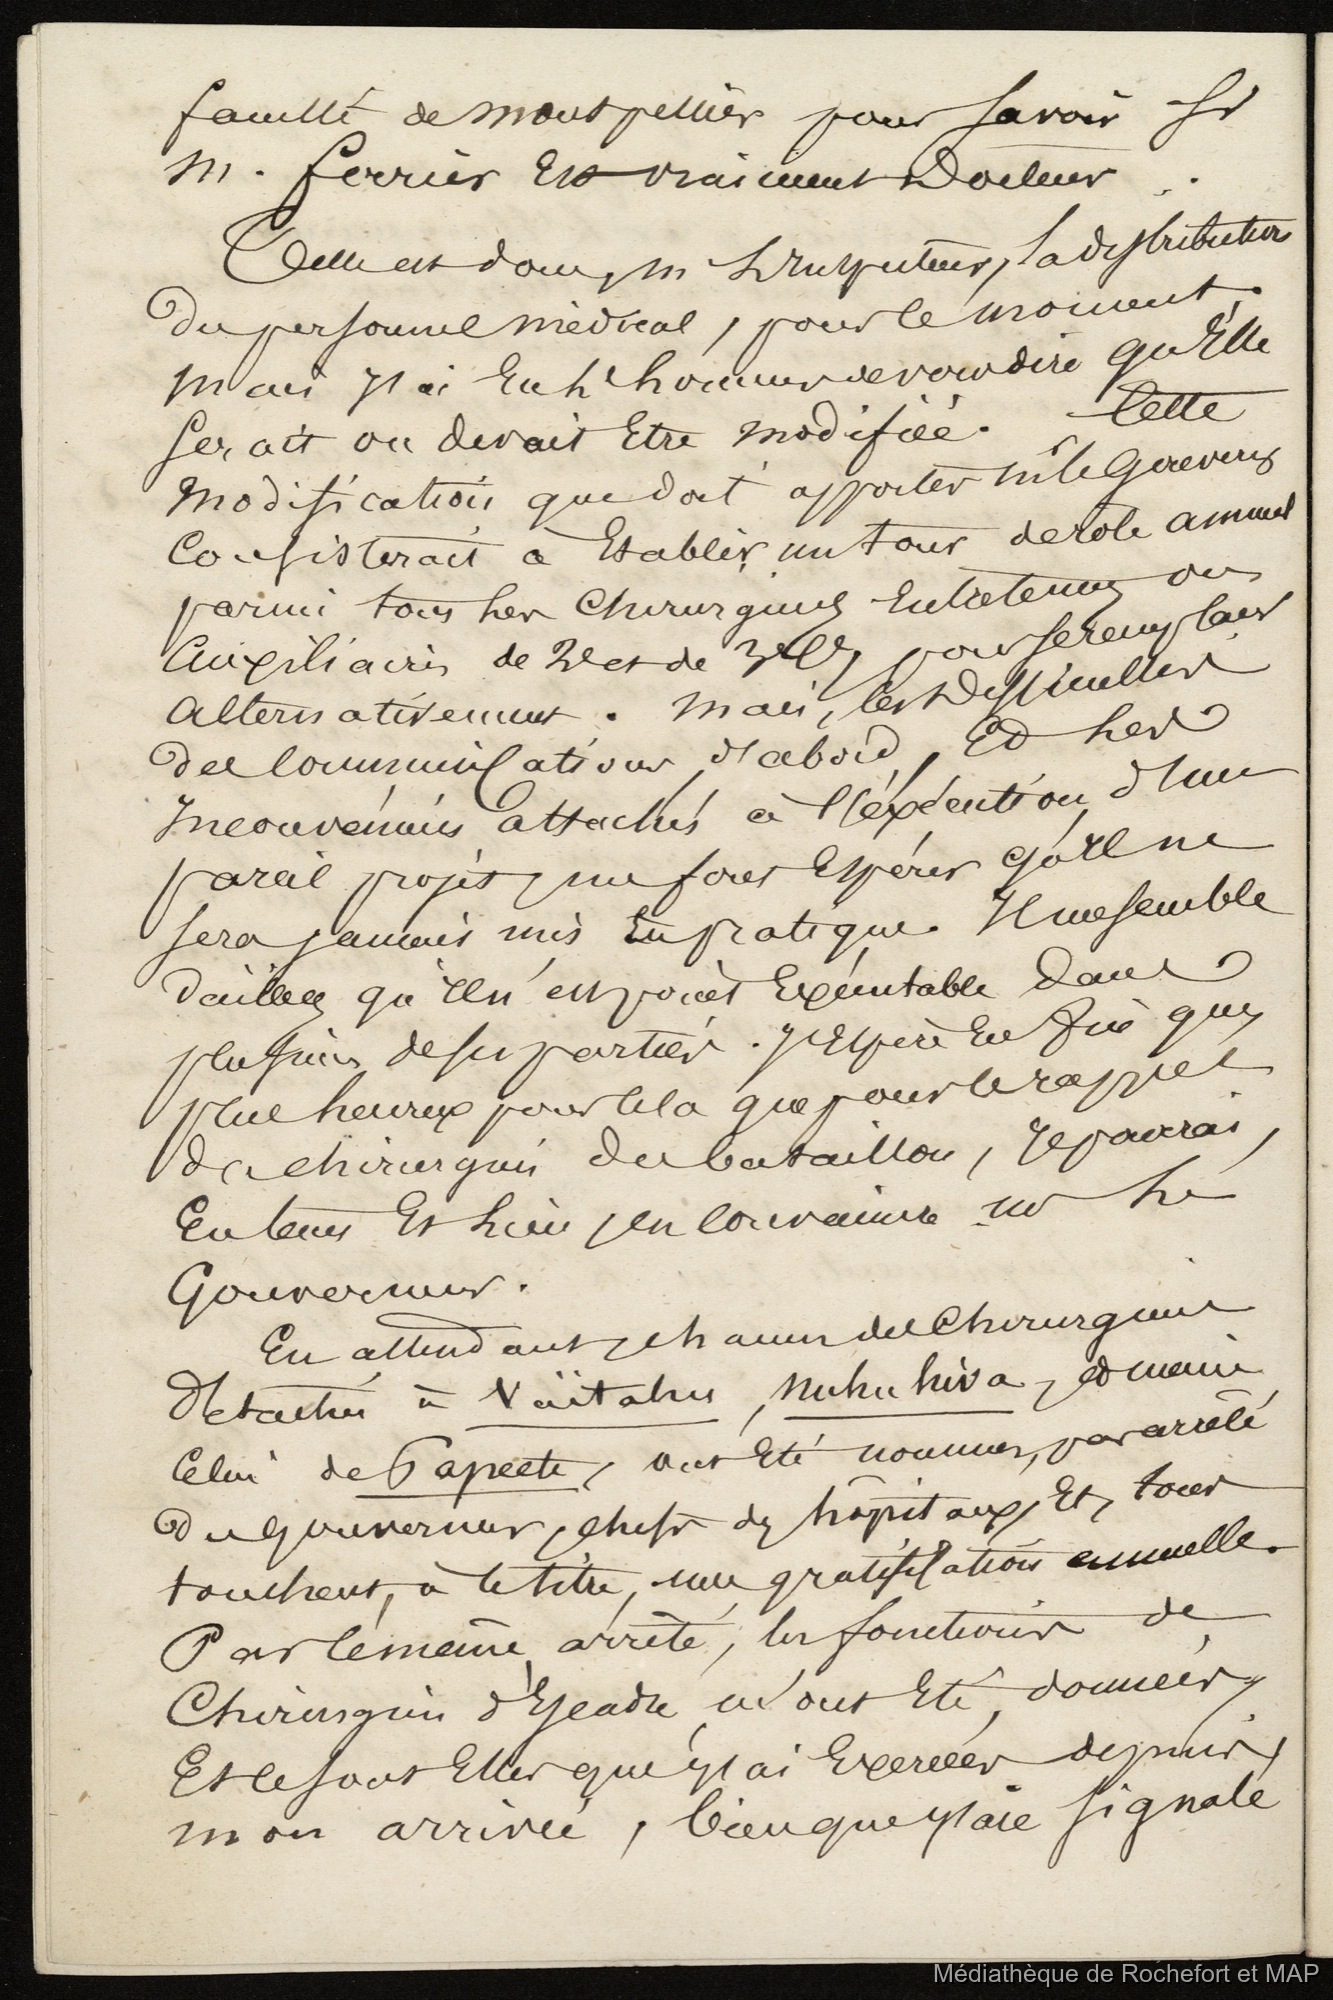 faculté de Montpellier pour savoir si
M. Ferrier Est vraiment Docteur.
Telle est donc, M L'Inspecteur, la distribution
Du personnel médical, pour le moment,
Mais j'ai Eu l'honneur de vous dire qu'Elle
serait ou devait Etre modifiée. Cette
Modification que doit apporter Mr le Gouverneur
Consisterait à Etablir un tour de rôle annuel
parmi tous les Chirurgiens Entretenus ou
Auxiliaires de 2e et de 3e Cl, pour se remplacer
Alternativement. Mais, les difficultés
des Communications, d'abord, Et les
Inconvéniens attachés à l'éxécution d'un
pareil projet, me font Espérer qu'Il ne
sera jamais mis En pratique. Il me semble
d'ailleurs qu'Il n'est point Exécutable dans
plusieurs de ses parties. J'Espère En fin que,
plus heureux pour cela que pour le rappel
du chirurgien du bataillon, Je pourrai,
En tems Et lieu, en Convaincre Mr le
Gouverneur.
En attendant, chacun des Chirurgiens
Détachés à Vaïtahu, Nuhuhiva, et même
Celui de Papeete, ont Eté nommés, par arrêté
Du gouverneur, chefs des hôpitaux, Et, tous
touchent, à ce titre, une gratification annuelle.
Par le même arrêté, les fonctions de
Chirurgien d'Escadre m'ont Eté données,
Et ce sont Elles que j'ai Exercées depuis
mon arrivée, bien que j'aie signalé
Médiathèque de Rochefort et MAP